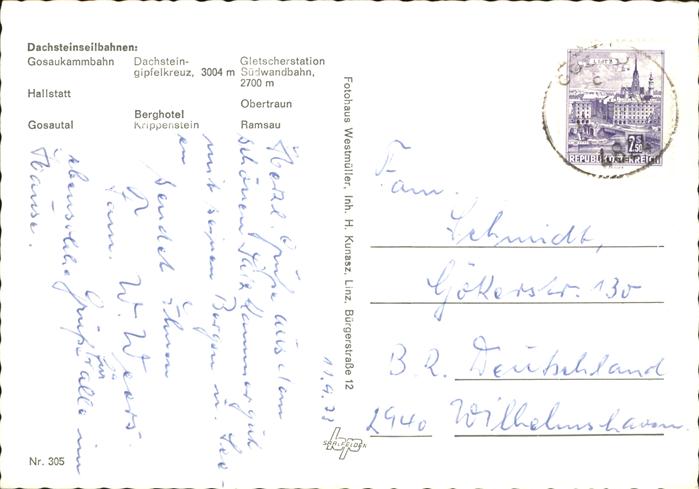 Dachsteinseilbahnen:
Gosaukammbahn
Hallstatt
Gosautal
Dachstein-
gipfelkreuz, 3004 m
Berghotel
Krippenstein
Gletscherstation
Südwandbahn,
2700 m
Obertraun
Ramsau
11.9.73
Herzl. Grüße aus dem
schönen Salzkammergut
mit seinen Bergen u. See-
en
sendet Ihnen
Fam. W.
ebensolche Grüße für alle im
Hause.
Nr. 305
Fotohaus Westmüller, Inh. H. Kunasz, Linz, Bürgerstraße 12
SAALFELDEN
2S50
REPUBLIK ÖSTERREICH
Fam.
Schmidt,
Gökerstr. 130
B.R. Deutschland
2940 Wilhelmshaven.